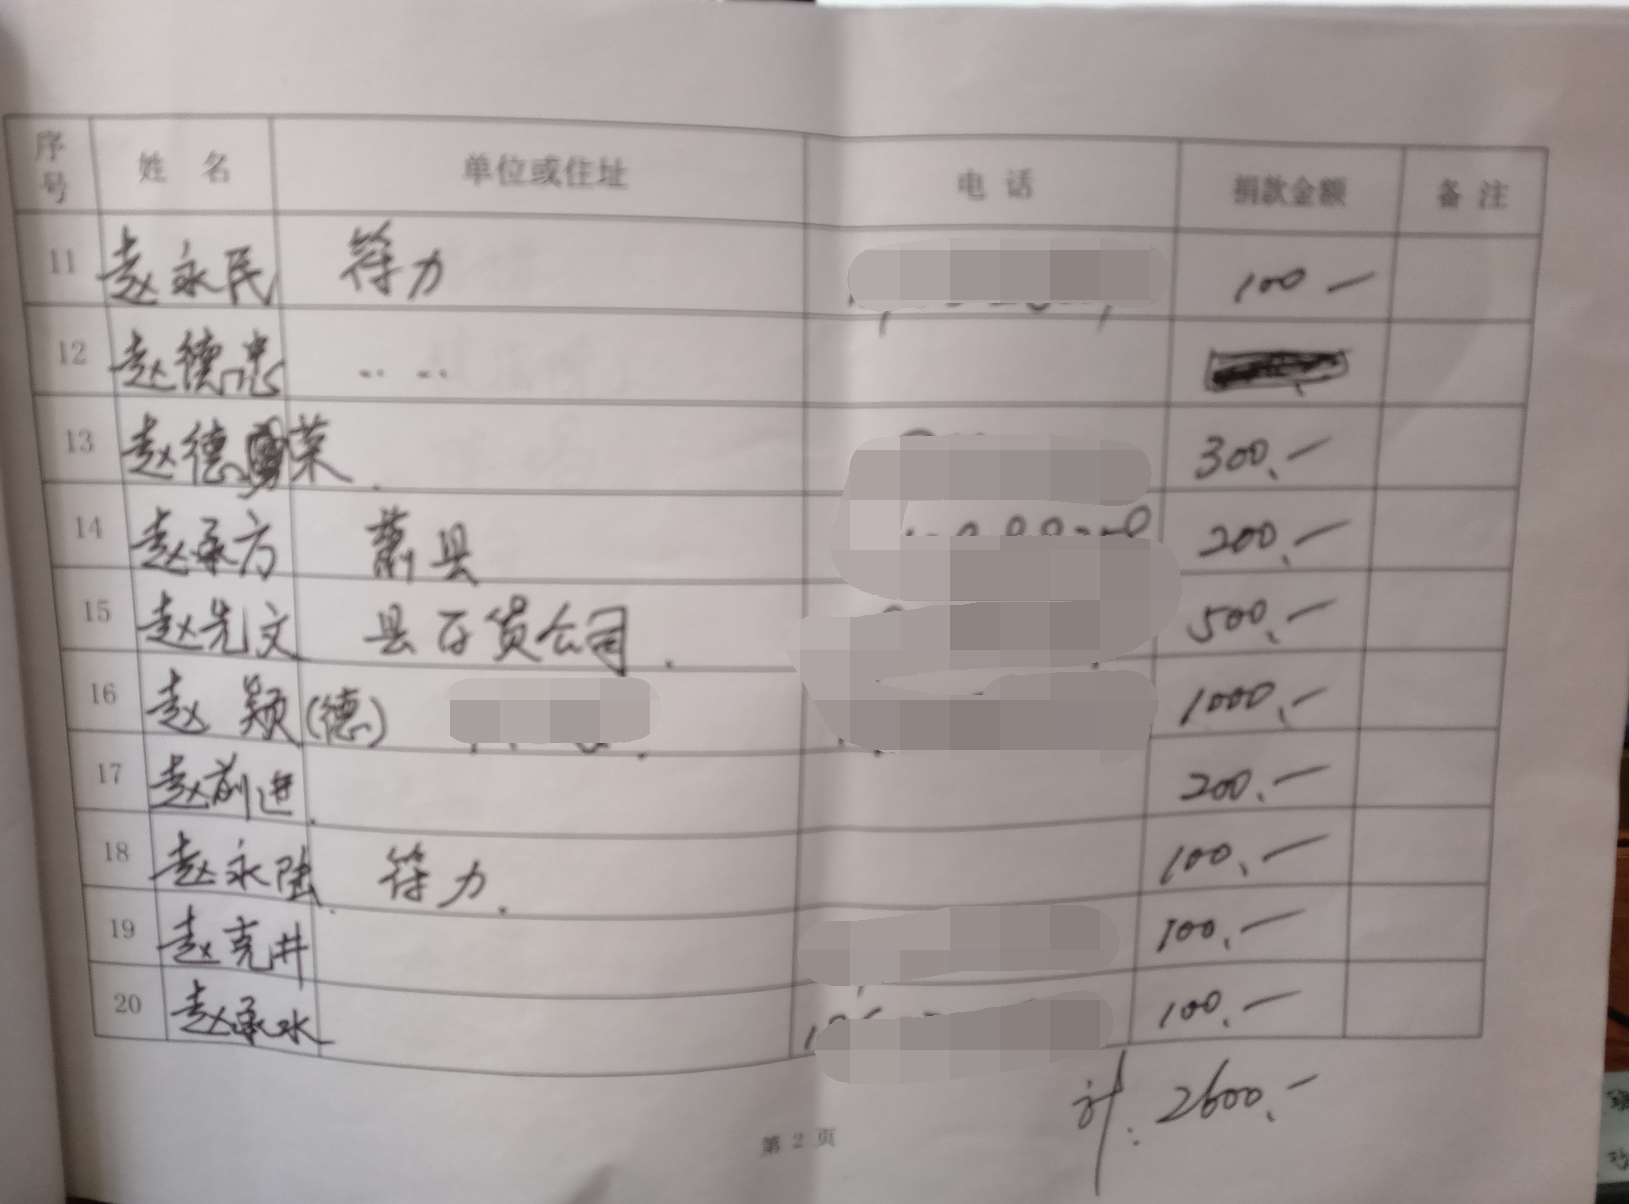 序号 姓名 单位或住址 电话 捐款金额 备注
11 赵永民 符力 100.—
12 赵德忠 .. ..
13 赵德荣. 300.—
14 赵承方 萧县 200.—
15 赵先文 县百货公司. 500.—
16 赵颖(德) 1000.—
17 赵前进. 200.—
18 赵永陆. 符力. 100.—
19 赵克井 100.—
20 赵承水 100.—
计: 2600.—
第 2 页